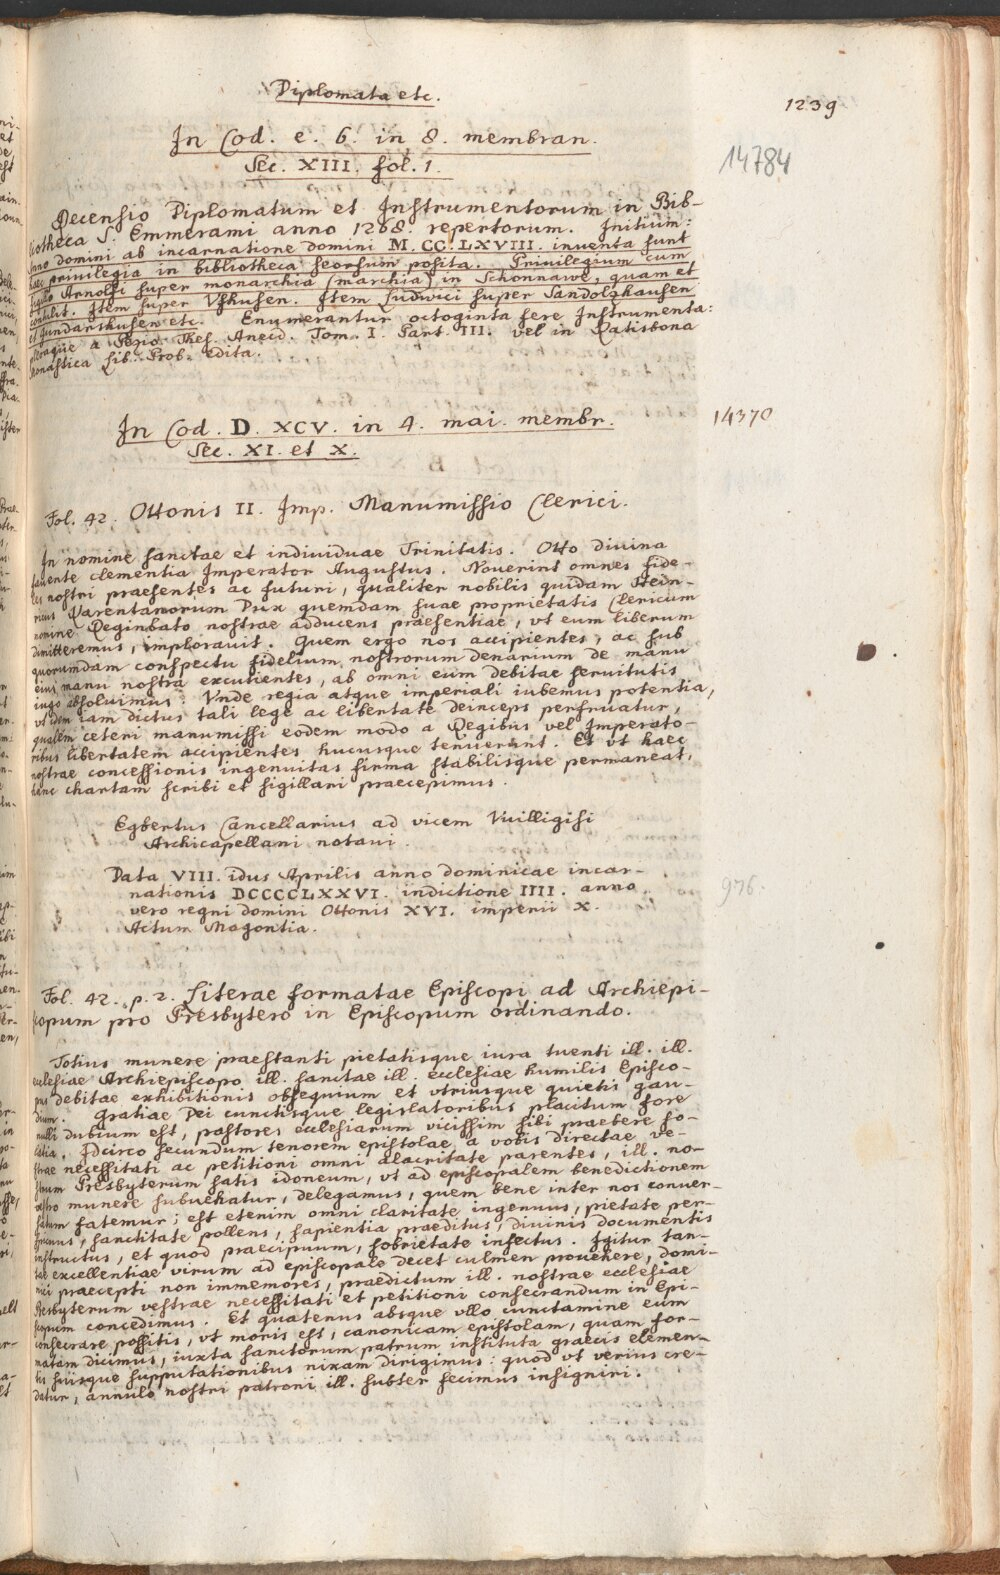 Diplomata etc.
1239
In Cod. e. 6. in 8. membran.
Sec. XIII. fol. 1.
14784
Recensio Diplomatum et Instrumentorum in Bib-
liotheca S. Emmerami anno 1268. repertorum. Initium:
Anno domini ab incarnatione domini M. CC. LXVIII. inventa sunt
haec privilegia in bibliotheca seorsum posita. Privilegium cum
sigillo Arnolfi super monarchia (marchia) in Schonnawe, quam et
contulit. Item super Vshusen. Item Ludwici super Sandolzhausen
et Gundarthusen etc. Enumerantur octoginta fere Instrumenta:
pleraque a Pezio Thes. Anecd. Tom. I. Part. III. vel in Ratisbona
Monastica Lib. Prob. edita.
In Cod. D. XCV. in 4. mai. membr.
14370
Sec. XI. et X.
Fol. 42. Ottonis II. Imp. Manumissio Clerici.
In nomine sanctae et individuae Trinitatis. Otto divina
favente clementia Imperator Augustus. Noverint omnes fide-
les nostri praesentes ac futuri, qualiter nobilis quidam Hein-
ricus Karentanorum Dux quemdam suae proprietatis Clericum
nomine Reginbato nostrae adducens praesentiae, vt eum liberum
dimitteremus, implorauit. Quem ergo nos accipientes, ac sub
quorumdam conspectu fidelium nostrorum denarium de manu
eius manu nostra excutientes, ab omni eum debitae seruitutis
iugo absoluimus. Vnde regia atque imperiali iubemus potentia,
vt idem iam dictus tali lege ac libertate deinceps perfruatur,
qualem ceteri manumissi eodem modo a Regibus vel Imperato-
ribus libertatem accipientes hucusque tenuerunt. Et vt haec
nostrae concessionis ingenuitas firma stabilisque permaneat,
hanc chartam scribi et sigillari praecepimus.
Egbertus Cancellarius ad vicem Vuilligisi
Archicapellani notaui.
Data VIII. idus Aprilis anno dominicae incar-
nationis DCCCCLXXVI. indictione IIII. anno
976.
vero regni domini Ottonis XVI. imperii X.
Actum Magontia.
Fol. 42. p. 2. Literae formatae Episcopi ad Archiepi-
scopum pro Presbytero in Episcopum ordinando.
Totius munere praestanti pietatisque iura tuenti ill. ill.
ecclesiae Archiepiscopo ill. sanctae ill. ecclesiae humilis Episco-
pus debitae exhibitionis obsequium et vtriusque quietis gau-
dium. Gratiae Dei cunctisque legislatoribus placitum fore
nulli dubium est, pastores ecclesiarum vicissim sibi praebere so-
latia. Idcirco secundum tenorem epistolae a vobis directae ve-
strae necessitati ac petitioni omni alacritate parentes, ill. no-
strum Presbyterum satis idoneum, vt ad episcopalem benedictionem
vestro munere subuehatur, delegamus, quem bene inter nos conuer-
satum fatemur; est etenim omni claritate ingenuus, pietate per-
spicuus, sanctitate pollens, sapientia praeditus, diuinis documentis
instructus, et quod praecipuum, sobrietate infectus. Igitur tan-
tae excellentiae virum ad episcopale decet culmen prouehere, domi-
nici praecepti non immemores, praedictum ill. nostrae ecclesiae
Presbyterum vestrae necessitati et petitioni consecrandum in Epi-
scopum concedimus. Et quatenus absque vllo cunctamine eum
consecrare possitis, vt moris est, canonicam epistolam, quam for-
matam dicimus, iuxta sanctorum patrum instituta graecis elemen-
tis huiusque supputationibus nixam dirigimus: quod vt verius cre-
datur, annulo nostri patroni ill. subter fecimus insigniri.